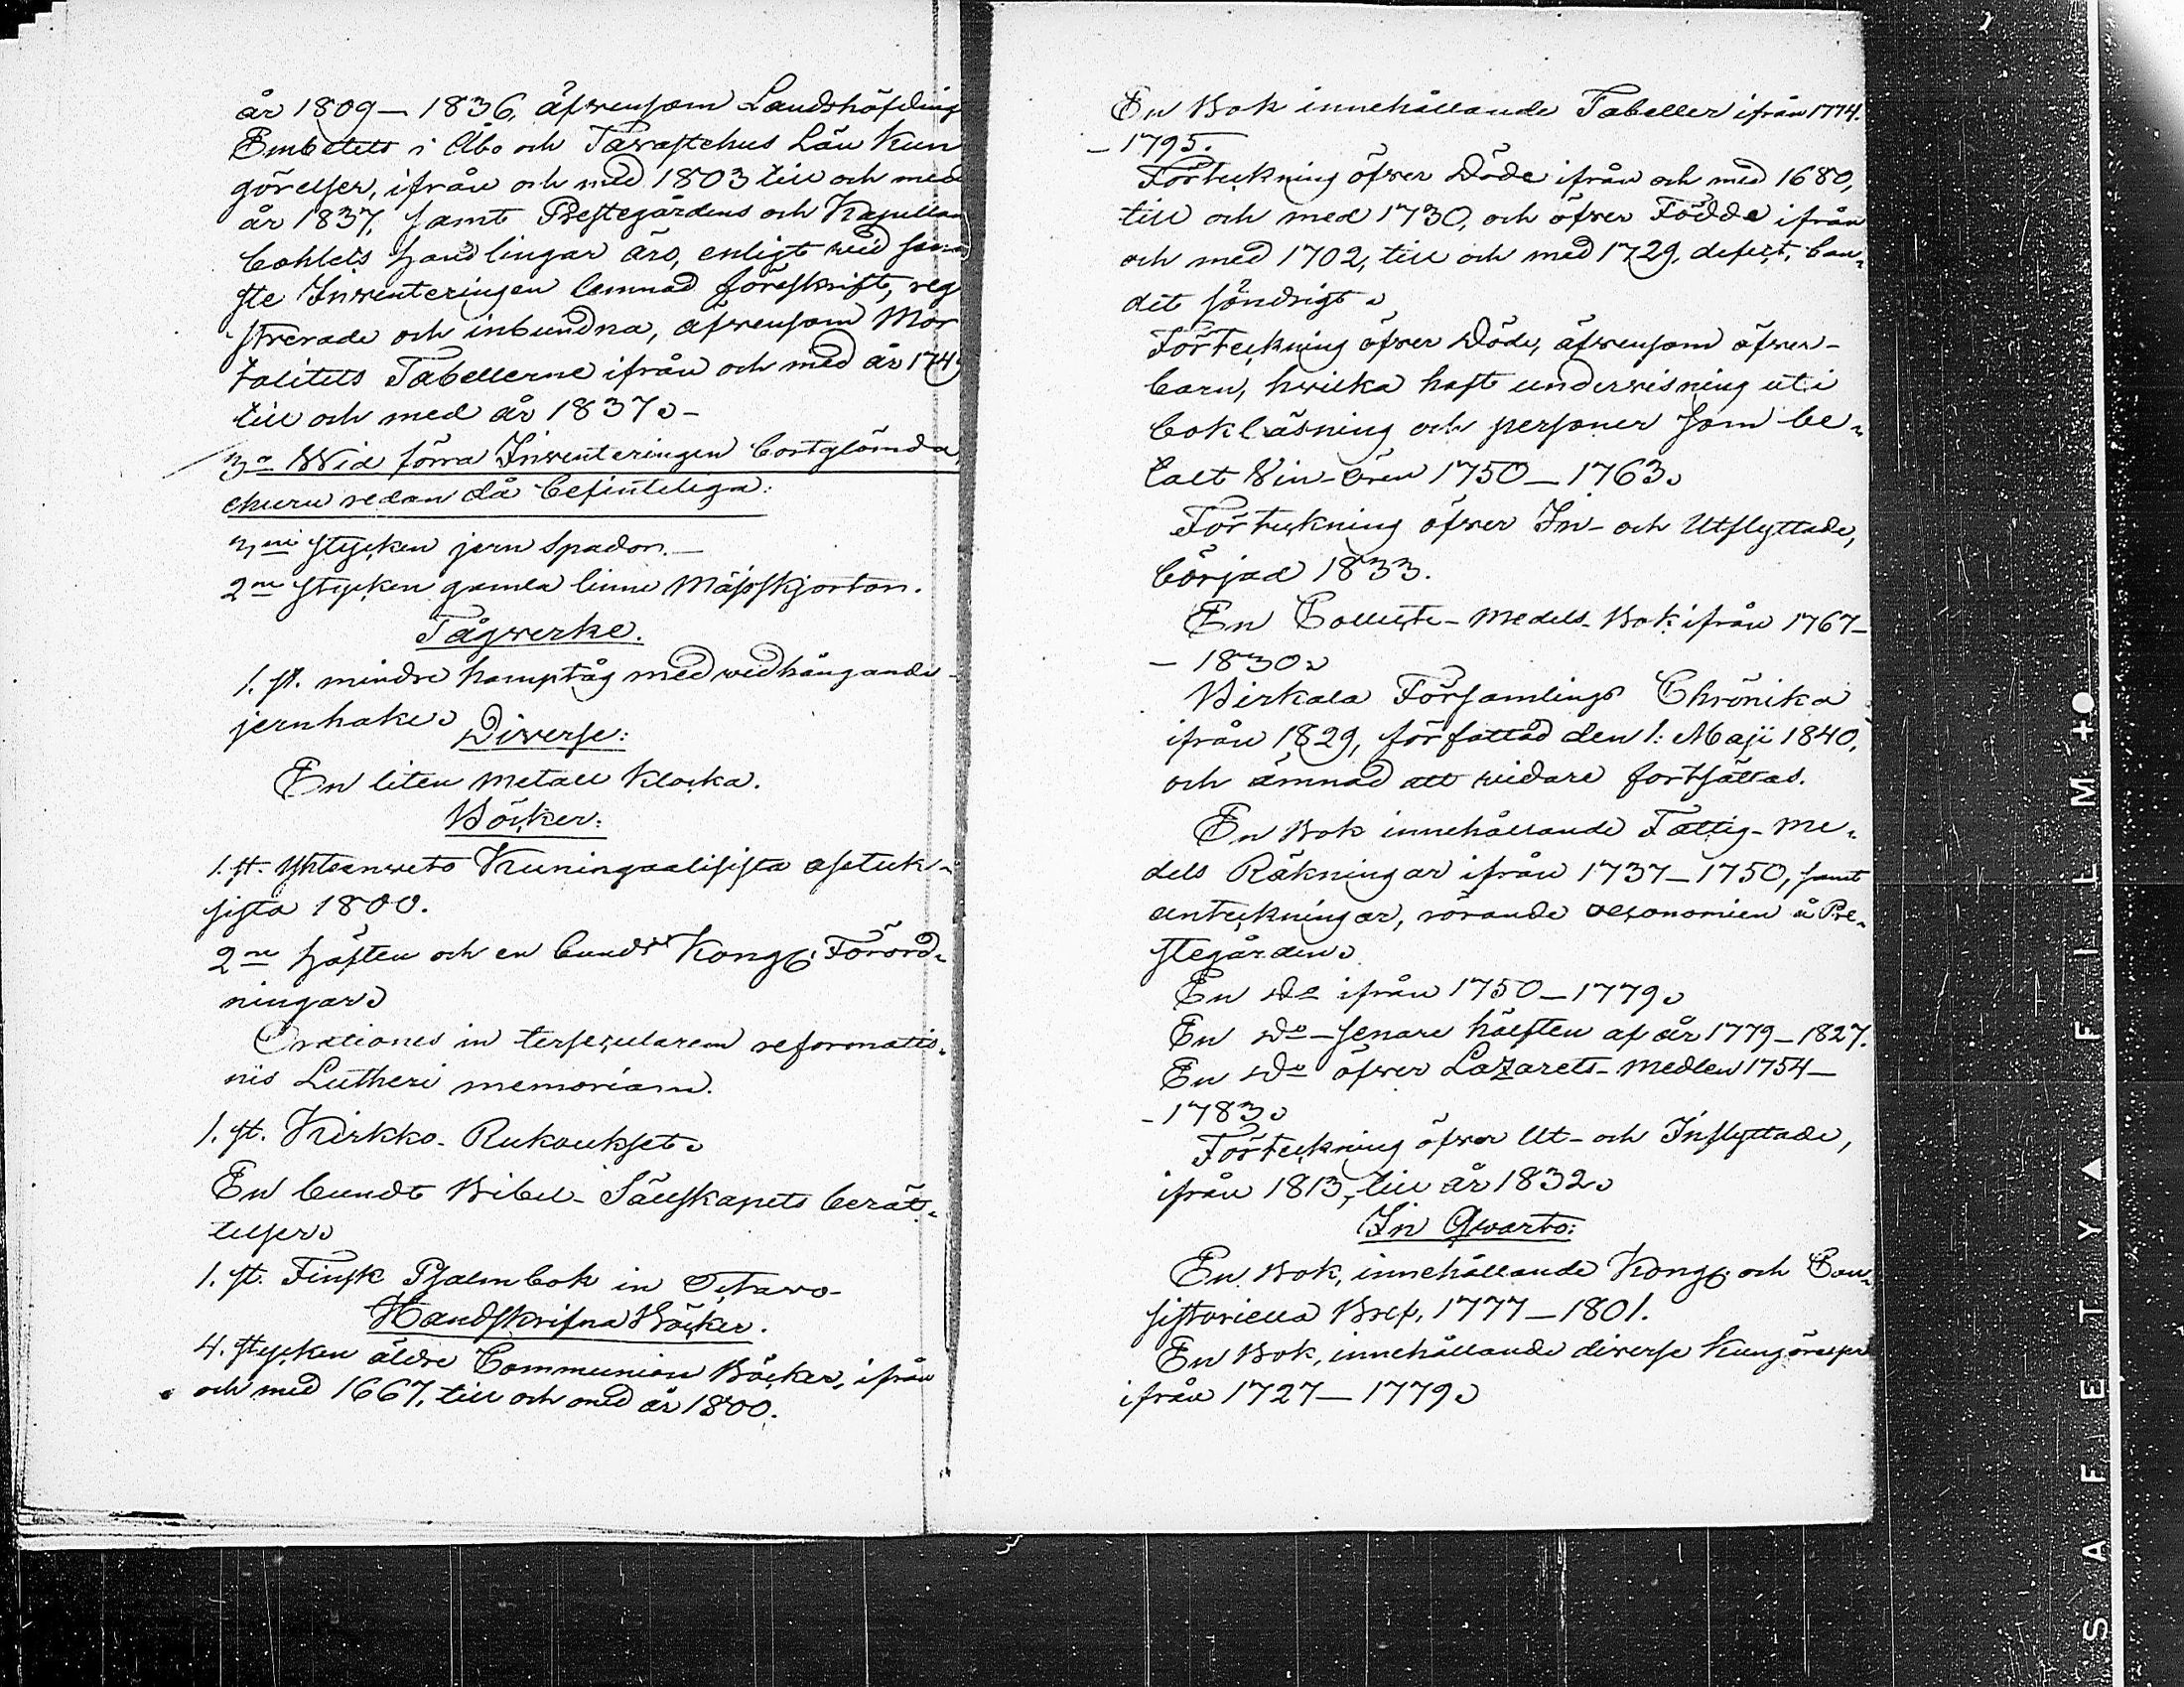 år 1809 — 1836, äfwensom Landshöfding
Embetets i Åbo och Tawastehus Län Kun
görelser, ifrån och med 1803 till och med
år 1837, samt Prestegårdens och Kapellan
bohlets handlingar äro, enligt wid sena
ste Inwenteringen lemnad föreskrift, reg
strerade och inbundna, äfwensom Mor
talitets Tabellerne ifrån och med år 174
till och med år 1837. -
3o Wid förra Inwenteringen bortglömda
ehuru redan då befinteliga:
3ne stycken jern Spador. —
2ne stycken gamla linne Mässkjortor.
Tågwerke.
1. st. mindre hamptåg med widhängande
jernhake.
Diwerse:
En liten Metall Klocka.
Böcker:
1. st. Yhteenweto Kuningaalisista asetuk-
sista 1800.
2ne häften och en bundt Kongl. Förord-
ningar.
Orationes in tersecularem reformatio-
nis Lutheri memoriam.
1. st. Kirkko-Rukoukset.
En bundt Bibel-Sällskapets berät-
telser.
1. st. Finsk Psalmbok in Octavo -
Handskrifna Böcker.
4. stycken äldre Communion Böcker, ifrån
och med 1667, till och med år 1800.
En Bok innehållande Tabeller ifrån 1774.
— 1795.
Förteckning öfwer Döde ifrån och med 1680,
till och med 1730, och öfwer Födde ifrån
och med 1702, till och med 1729, defect, ban-
det söndrigt.
Förteckning öfwer Döde, äfwensom öfwer -
barn, hwilka haft underwisning uti
bokläsning och personer som be-
talt Win-ören 1750 — 1763.
Förteckning öfwer In- och Utflyttade,
börjad 1833.
En Collecte-Medels-Bok ifrån 1767 —
— 1830.
Birkala Församlings Chrönika
ifrån 1829, författad den 1: Maji 1840,
och ämnad att widare fortsättas.
En Bok innehållande Fattig-Me-
dels Räkningar ifrån 1737 — 1750, samt
anteckningar, rörande oeconomien å Pre-
stegården.
En Do ifrån 1750 — 1779.
En Do — senare hälften af år 1779 — 1827.
En Do öfwer Lazarets-Medlen 1754 —
— 1783.
Förteckning öfwer Ut- och Inflyttade,
ifrån 1813, till år 1832.
In Qwarto:
En Bok, innehållande Kongl. och Con-
sistoriella Bref, 1777 — 1801.
En Bok, innehållande diverse Kungörelser
ifrån 1727 — 1779.
SAFETY ▲ FILM